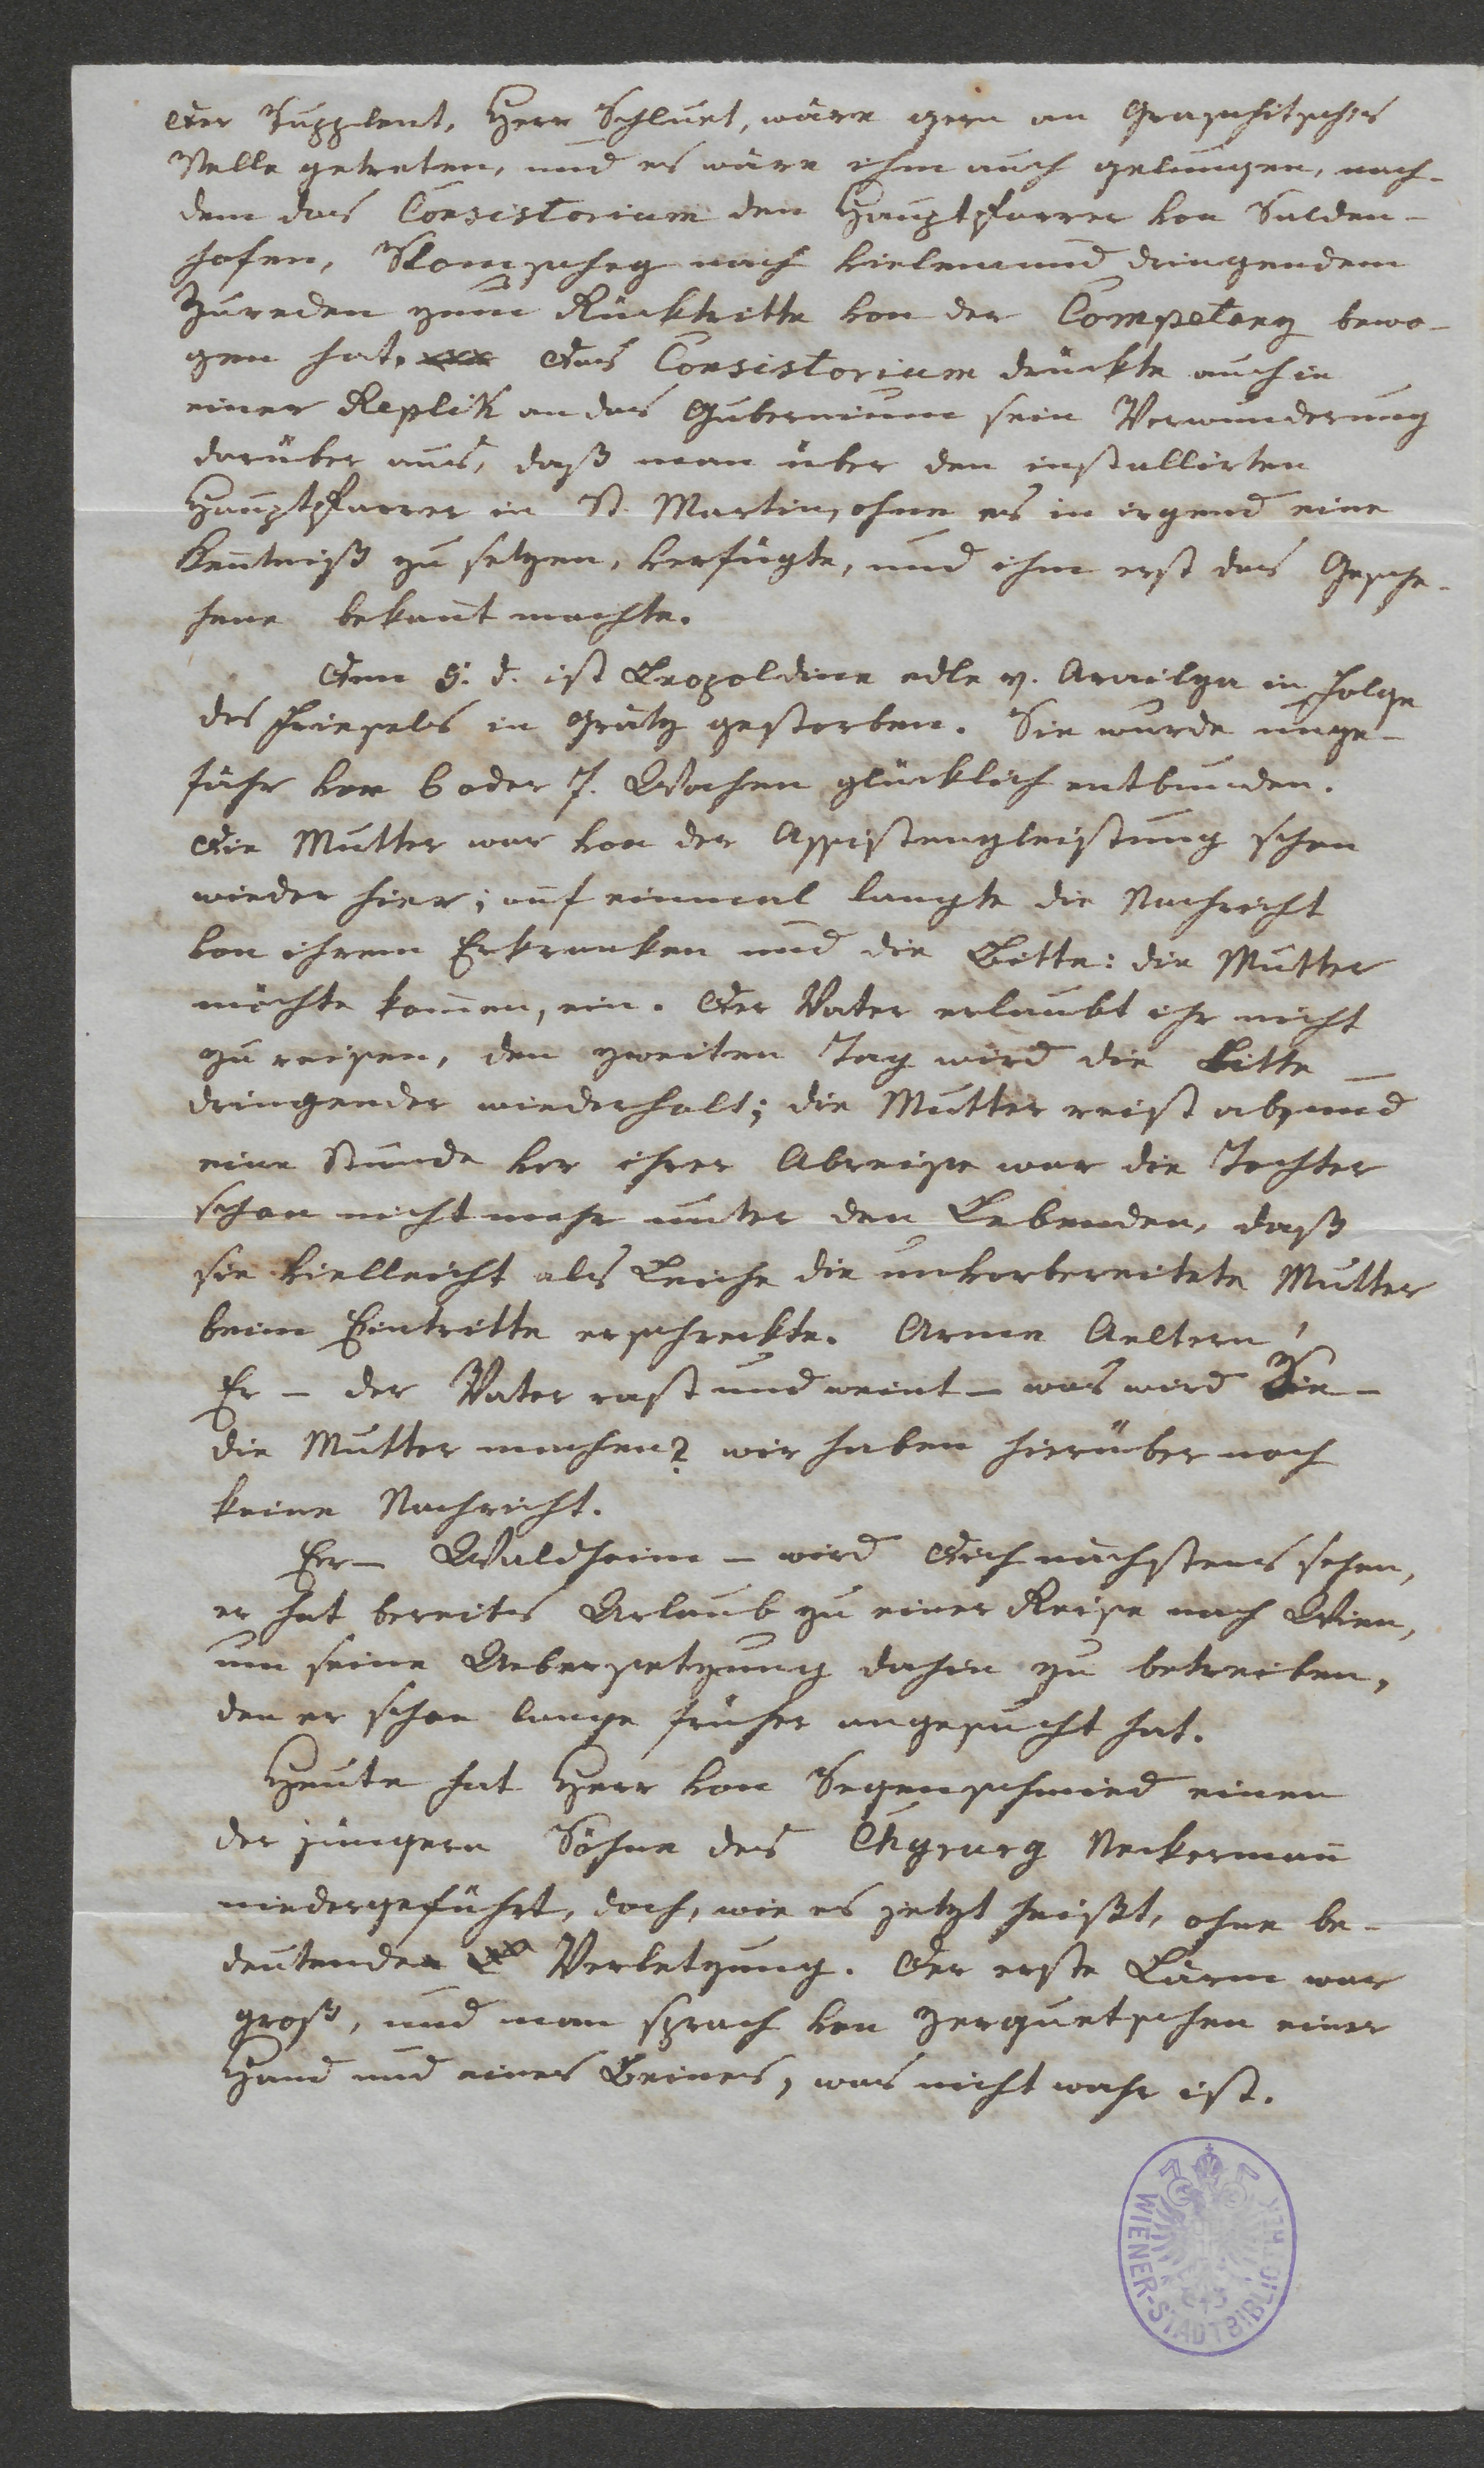 Der Supplent, Herr Schluet, wäre gern an Graschitsch's
Stelle getreten, und es wäre ihm auch gelungen, nach-
dem das Consistorium den Hauptpfarrer von Salden-
hofen, Slomscheg nach vielem und dringendem
Zureden zum Rücktritte von der Competenz bewo-
gen hat. Das Consistorium drückte auch in
einer Replik an das Gubernium sein Verwunderung
darüber aus, daß man über den installirten
Hauptpfarrer in St. Martin, ohne es in irgend eine
Kentniß zu setzen, verfügte, und ihm erst das Gesche-
hene bekant machte.
Den 5. d. ist Leopoldine edle v. in Folge
des Friesels in Grätz gestorben. Sie wurde unge-
fähr vor 6 oder 7. Wochen glücklich entbunden.
Die Mutter war von der Assistenzleistung schon
wieder hier; auf einmal langte die Nachricht
von ihrem Erkranken und die Bitte: die Mutter
möchte komen, ein. Der Vater erlaubt ihr nicht
zu reisen, den zweiten Tag wird die Bitte
dringender wiederholt; die Mutter reist ab, und
eine Stunde vor ihrer Abreise war die Tochter
schon nicht mehr unter den Lebenden, daß
sie vielleicht als Leiche die unvorbereitete Mutter
beim Eintritte erschreckte. Arme Aeltern!
Er – der Vater rast und weint – was wird Sie –
die Mutter machen? wir haben hierüber noch
keine Nachricht.
Er – Waldheim – wird Dich nächstens sehen,
er hat bereits Urlaub zu einer Reise nach Wien,
um seine Uebersetzung dahin zu betreiben,
den er schon lange früher angesucht hat.
Heute hat Herr von Segenschmied einen
der jüngern Söhne des Chyrurg Neckermañ
niedergeführt, doch, wie es jetzt heißt, ohne be-
deutende Verletzung. Der erste Lärm war
groß, und man sprach von Zerquetschen einer
Hand und eines Beines, was nicht wahr ist.
WIENER-STADTBIBLIOTHEK